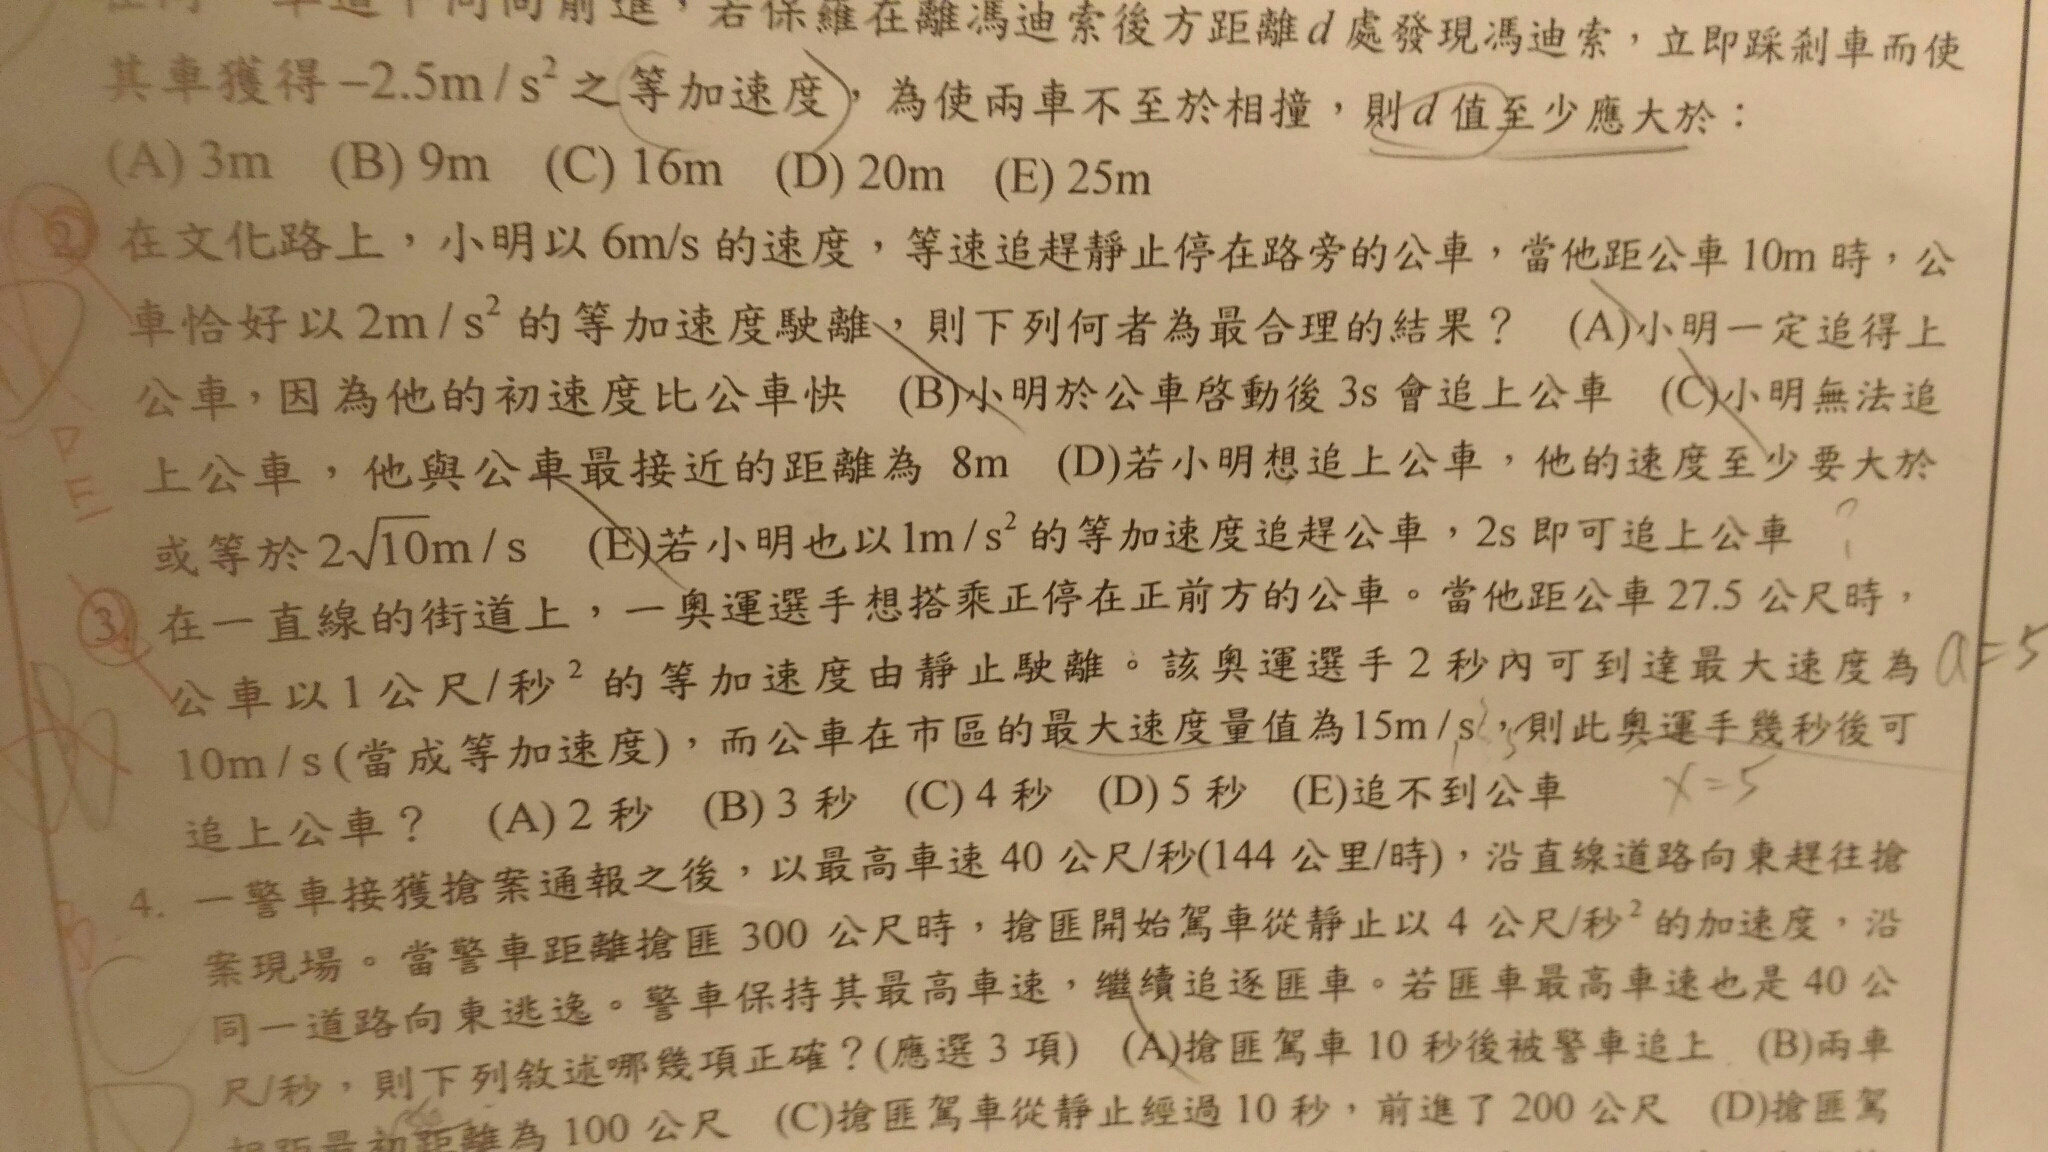 車道中同向前進，若保羅在離馮迪索後方距離d處發現馮迪索，立即踩剎車而使
其車獲得−2.5m/s²之等加速度，為使兩車不至於相撞，則d值至少應大於：
(A) 3m (B) 9m (C) 16m (D) 20m (E) 25m
2. 在文化路上，小明以6m/s的速度，等速追趕靜止停在路旁的公車，當他距公車10m時，公
車恰好以2m/s²的等加速度駛離，則下列何者為最合理的結果？ (A)小明一定追得上
公車，因為他的初速度比公車快 (B)小明於公車啓動後3s會追上公車 (C)小明無法追
上公車，他與公車最接近的距離為 8m (D)若小明想追上公車，他的速度至少要大於
D
E
或等於2√10m/s (E)若小明也以1m/s²的等加速度追趕公車，2s即可追上公車 ?
3. 在一直線的街道上，一奧運選手想搭乘正停在正前方的公車。當他距公車27.5公尺時，
公車以1公尺/秒²的等加速度由靜止駛離。該奧運選手2秒內可到達最大速度為 a=5
10m/s(當成等加速度)，而公車在市區的最大速度量值為15m/s，則此奧運手幾秒後可
追上公車？ (A) 2秒 (B) 3秒 (C) 4秒 (D) 5秒 (E)追不到公車 x=5
4. 一警車接獲搶案通報之後，以最高車速40公尺/秒(144公里/時)，沿直線道路向東趕往搶
案現場。當警車距離搶匪300公尺時，搶匪開始駕車從靜止以4公尺/秒²的加速度，沿
同一道路向東逃逸。警車保持其最高車速，繼續追逐匪車。若匪車最高車速也是40公
尺/秒，則下列敘述哪幾項正確？(應選3項) (A)搶匪駕車10秒後被警車追上 (B)兩車
相距最初距離為100公尺 (C)搶匪駕車從靜止經過10秒，前進了200公尺 (D)搶匪駕